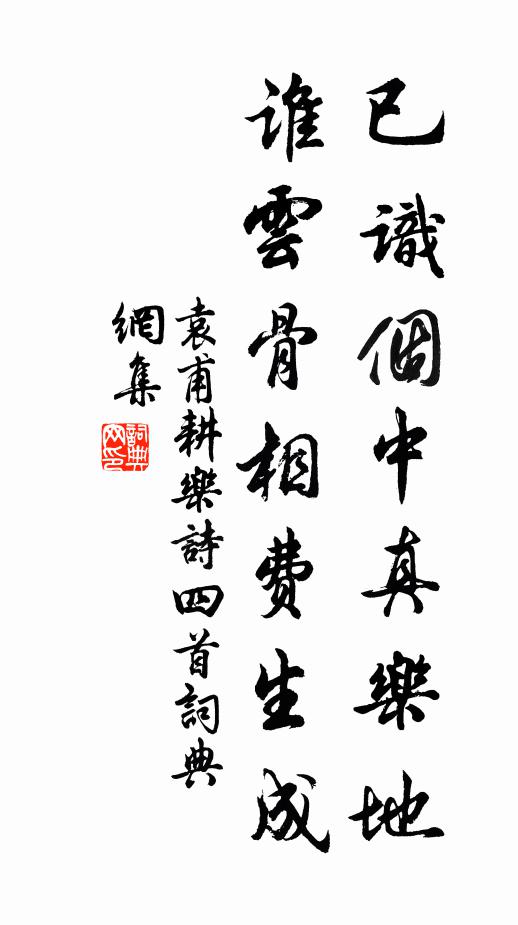 已識個中真樂地
誰雲骨相費生成
袁甫耕樂詩四首詞典
網集
詞典
网印